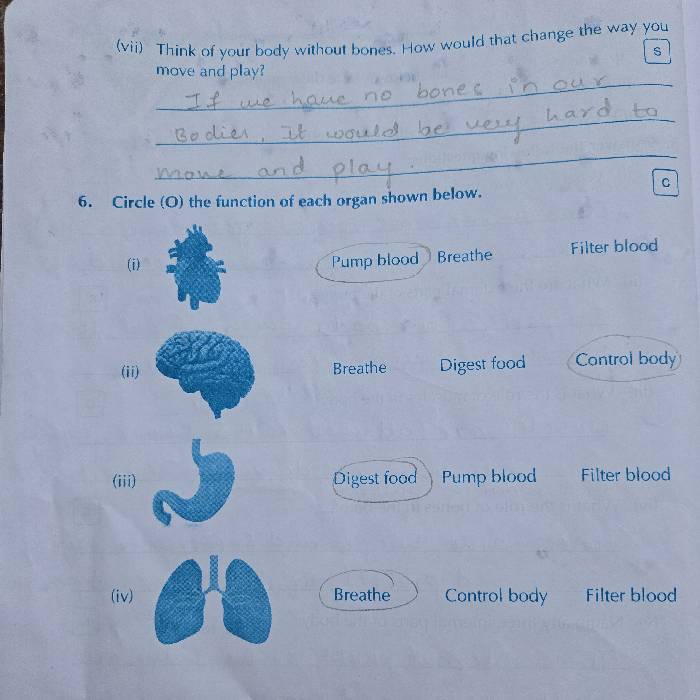 (vii) Think of your body without bones. How would that change the way you
move and play? S
If we have no bones in our
Bodies, it would be very hard to
move and play.
C
6. Circle (O) the function of each organ shown below.
(i) Pump blood Breathe Filter blood
(ii) Breathe Digest food Control body
(iii) Digest food Pump blood Filter blood
(iv) Breathe Control body Filter blood